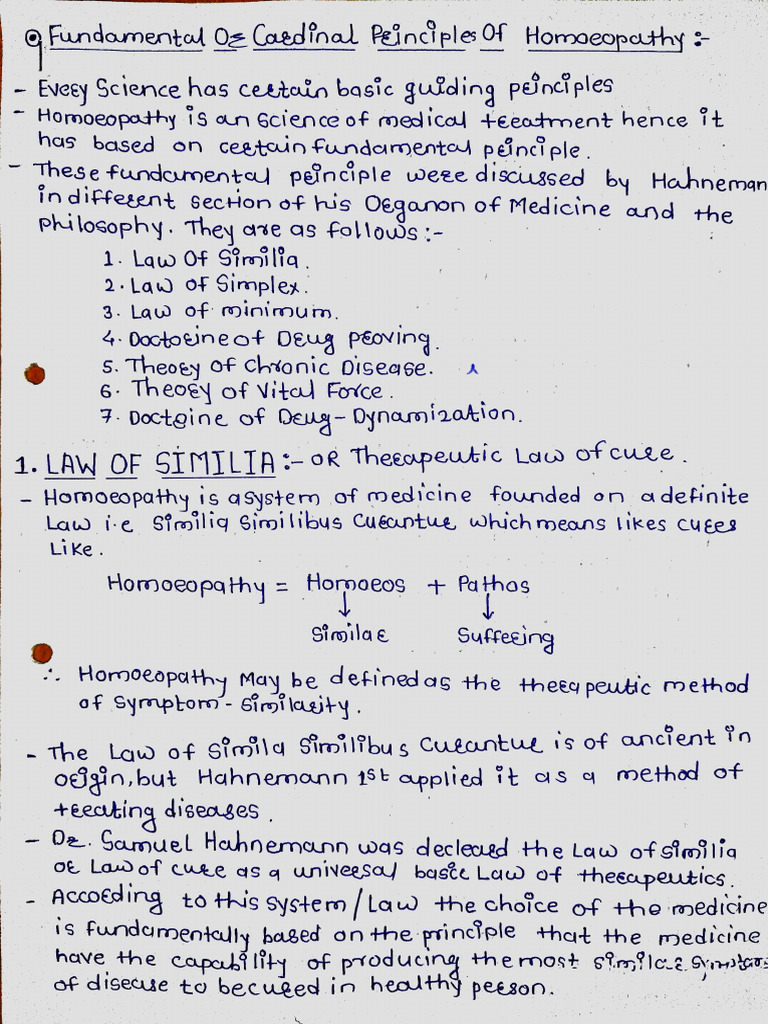 Q Fundamental Or Cardinal Principles Of Homoeopathy :-
- Every Science has certain basic guiding principles
- Homoeopathy is an science of medical treatment hence it
has based on certain fundamental principle.
- These fundamental principle were discussed by Hahneman
in different section of his Organon of Medicine and the
philosophy. They are as follows :-
1. Law Of Similia.
2. Law of Simplex.
3. Law of minimum.
4. Doctorine of Drug proving.
5. Theory of Chronic Disease.
6. Theory of Vital Force.
7. Doctrine of Drug-Dynamization.
1. LAW OF SIMILIA :- OR Therapeutic Law of cure.
- Homoeopathy is a system of medicine founded on a definite
Law i.e Similia Similibus Curantur which means likes cures
Like.
Homoeopathy = Homoeos + Pathos
↓ ↓
Similar Suffering
∴ Homoeopathy May be defined as the therapeutic method
of symptom-similarity.
- The Law of Simila Similibus Curantur is of ancient in
origin, but Hahnemann 1st applied it as a method of
treating diseases.
- Dr. Samuel Hahnemann was decleard the Law of similia
or Law of cure as a universal basic Law of therapeutics.
- According to this system/Law the choice of the medicine
is fundamentally based on the principle that the medicine
have the capability of producing the most similar symptoms
of disease to becured in healthy person.